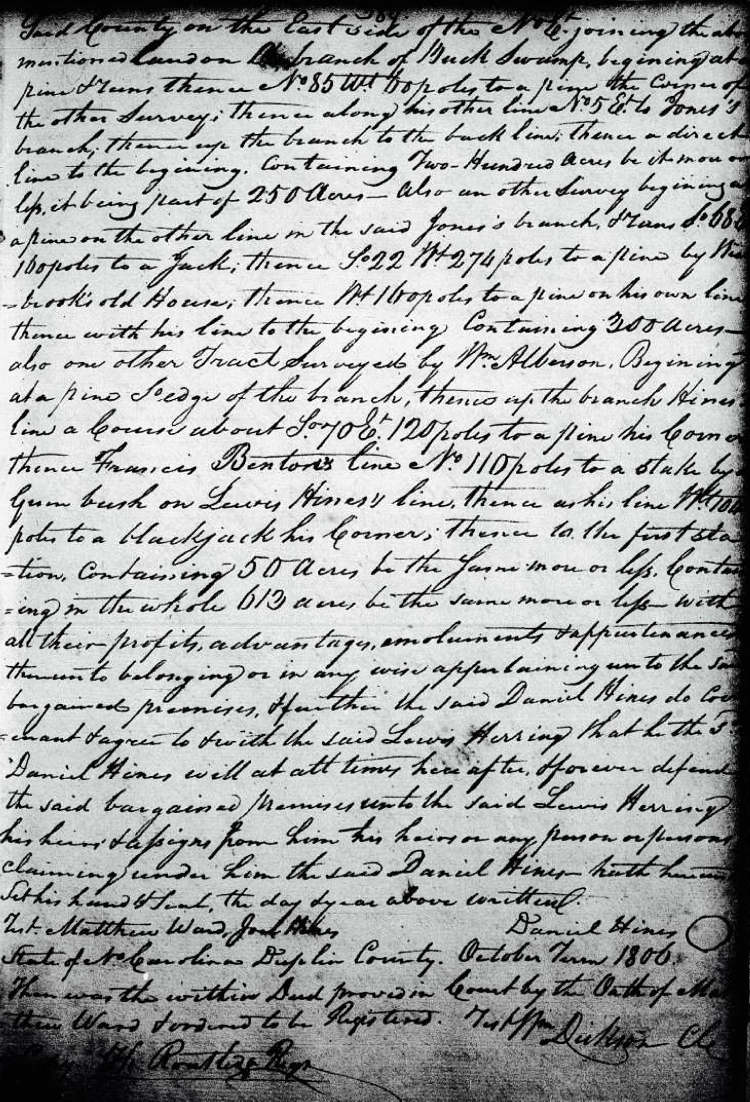 Said County on the East side of the No Et. joining the abo
mentioned land on a branch of Buck Swamp, begining at a
pine & runs thence No 85 Wt. 60 poles to a pine the Corner of
the other Survey; thence along his other line No 5 Et. to Jones's
branch; thence up the branch to the back line; thence a direct
line to the begining. Containing Two-Hundred Acres be it more or
less, it being part of 250 Acres — Also an other Survey begining at
a pine on the other line in the said Jones's branch, & runs So. 68 E
160 poles to a Jack; thence So 22 Wt 274 poles to a pine by
-brook's old House; thence Wt 160 poles to a pine on his own line
thence with his line to the begining Containing 300 Acres—
also one other Tract Surveyed by Wm. Alberson. Begining
at a pine So edge of the branch, thence up the branch Hines's
line a Course about So. 70 Et. 120 poles to a pine his Corner
thence Francis Benton's line No 110 poles to a stake by a
Gum bush on Lewis Hines's line, thence as his line Wt. 104
poles to a blackjack his Corner; thence to the first sta
=tion, Containing 50 Acres be the same more or less, Contain
=ing in the whole 613 acres be the same more or less— with
all their profits, advantages, emoluments & appurtenances
thereunto belonging or in any wise appertaining unto the said
bargained premises, & further the said Daniel Hines do Cov
=enant & agree to & with the said Lewis Herring that he the Sd.
Daniel Hines will at all times here after, & forever defend
the said bargained premises unto the said Lewis Herring
his heirs & assigns from him his heirs or any person or persons
claiming under him the said Daniel Hines hath hereunto
Set his hand & Seal, the day & year above written.
Test. Matthew Ward, Joel Hines Daniel Hines
State of No Carolina Duplin County. October Term 1806.
Then was the within Deed proved in Court by the Oath of Mat
thew Ward & ordered to be Registered. Test Wm Dickson Clk
Routledge Regr